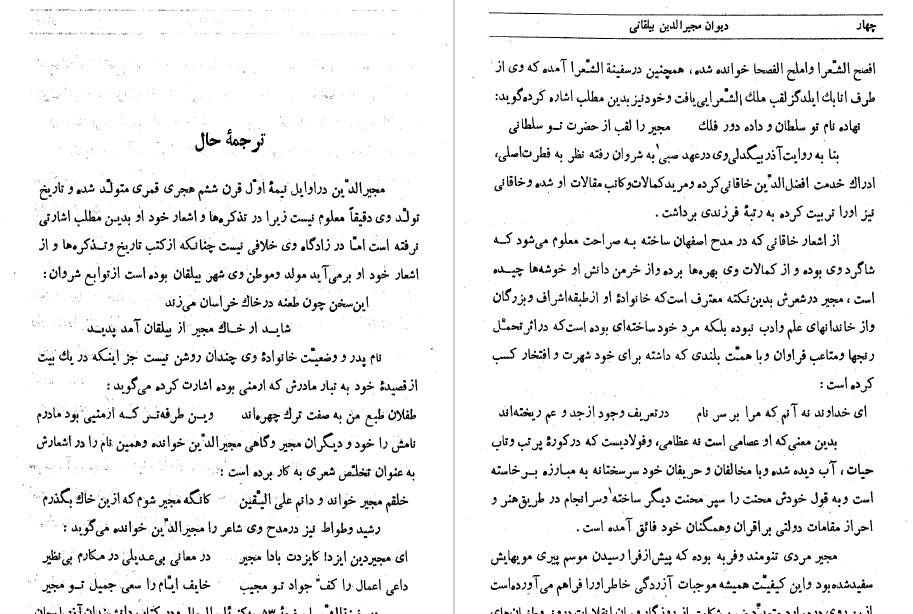 ترجمهٔ حال
مجیرالدّین دراوایل نیمهٔ اوّل قرن ششم هجری قمری متولّد شده و تاریخ
تولّد وی دقیقاً معلوم نیست زیرا در تذکره‌ها و اشعار خود او بدین مطلب اشارتی
نرفته است امّا در زادگاه وی خلافی نیست چنانکه ازکتب تاریخ وتذکره‌ها و از
اشعار خود او برمی‌آید مولد وموطن وی شهر بیلقان بوده است ازتوابع شروان:
این‌سخن چون طعنه درخاك خراسان می‌زند
شاید ار خاك مجیر از بیلقان آمد پدید
نام پدر و وضعیّت خانوادهٔ وی چندان روشن نیست جز اینکه در یك بیت
ازقصیدهٔ خود به تبار مادرش که ارمنی بوده اشارت کرده می‌گوید:
طفلان طبع من به صفت ترك چهره‌اند وین طرفه‌تر که ارمنیی بود مادرم
نامش را خود و دیگران مجیر وگاهی مجیرالدّین خوانده وهمین نام را در اشعارش
به عنوان تخلّص شعری به کار برده است:
خلقم مجیر خواند و دانم علی الیقین کانگه مجیر شوم که ازین خاك بگذرم
رشید وطواط نیز درمدح وی شاعر را مجیرالدّین خوانده می‌گوید:
ای مجیردین ایزد! کایزدت بادا مجیر در معانی بی‌عدیلی در مکارم بی‌نظیر
داعی اعمال را کفّ جواد تو مجیب خایف ایّام را سعی جمیل تو مجیر
چهار دیوان مجیرالدین بیلقانی
افصح الشّعرا واملح الفصحا خوانده شده، همچنین درسفینة الشّعرا آمده که وی از
طرف اتابك ایلدگز لقب ملك الشّعرایی یافت وخودنیز بدین مطلب اشاره کرده‌گوید:
نهاده نام تو سلطان و داده دور فلك مجیر را لقب از حضرت تو سلطانی
بنا به روایت آذر بیگدلی وی درعهد صبی به شروان رفته نظر به فطرت اصلی،
ادراك خدمت افضل‌الدّین خاقانی کرده و مرید کمالات وکاتب مقالات او شده وخاقانی
نیز اورا تربیت کرده به رتبهٔ فرزندی برداشت.
از اشعار خاقانی که در مدح اصفهان ساخته به صراحت معلوم می‌شود که
شاگرد وی بوده و از کمالات وی بهره‌ها برده واز خرمن دانش او خوشه‌ها چیده
است، مجیر درشعرش بدین‌نکته معترف است‌که خانوادهٔ او ازطبقه‌اشراف وبزرگان
واز خاندانهای علم وادب نبوده بلکه مرد خودساخته‌ای بوده است‌که دراثرتحمّل
رنجها ومتاعب فراوان وبا همّت بلندی که داشته برای خود شهرت و افتخار کسب
کرده است:
ای خداوند نه آنم که مرا بر سر نام درتعریف وجود ازجد و عم ریخته‌اند
بدین معنی‌که او عصامی است نه عظامی، وفولادیست که درکورهٔ پرتب وتاب
حیات، آب دیده شده وبا مخالفان و حریفان خود سرسختانه به مبارزه برخاسته
است وبه قول خودش محنت را سپر محنت دیگر ساخته وسرانجام در طریق‌هنر و
احراز مقامات دولتی بر اقران وهمگنان خود فائق آمده است.
مجیر مردی تنومند وفربه بوده که پیش‌ازفرا رسیدن موسم پیری مویهایش
سفیدشده‌بود واین کیفیّت همیشه موجبات آزردگی خاطراورا فراهم می‌آورده‌است